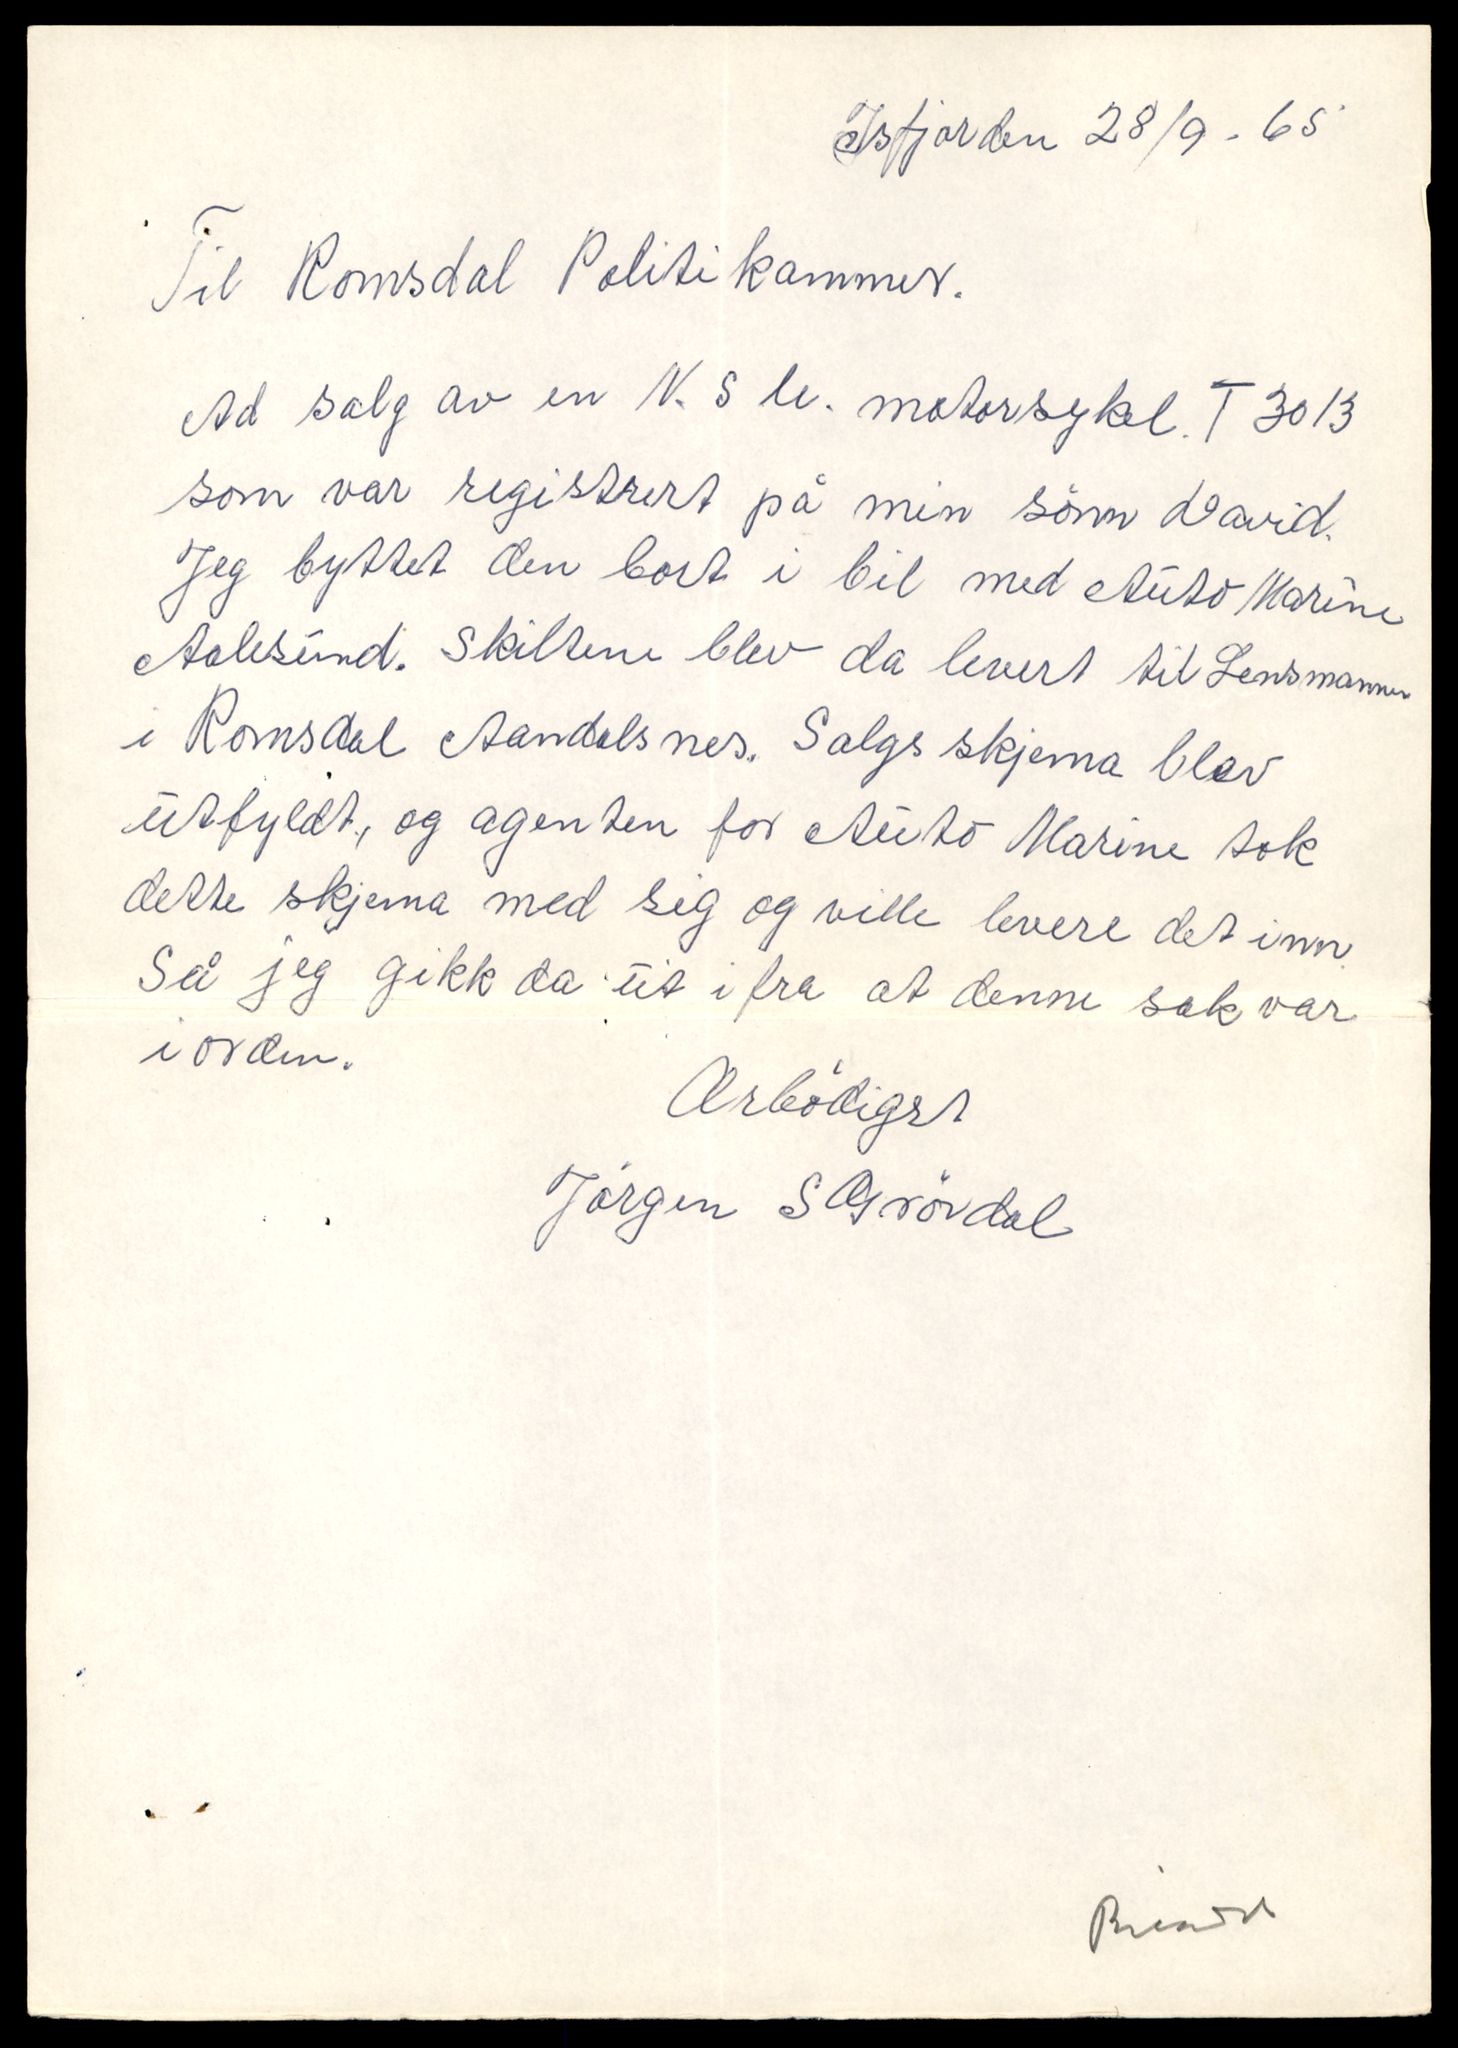 Isfjorden 28/9 - 65
Til Romsdal Politikammer.
Ad salg av en N. S u. motorsykel. T 3013
som var registrert på min sönn David.
Jeg byttet den bort i bil med Auto Marine
Aalesund. Skiltene blev da levert til Lensmannen
i Romsdal Aandalsnes. Salgs skjema blev
utfyldt, og agenten for Auto Marine tok
dette skjema med sig og ville levere det inn.
Så jeg gikk da ut ifra at denne sak var
i orden.
Ærbödigst
Jörgen S Grövdal